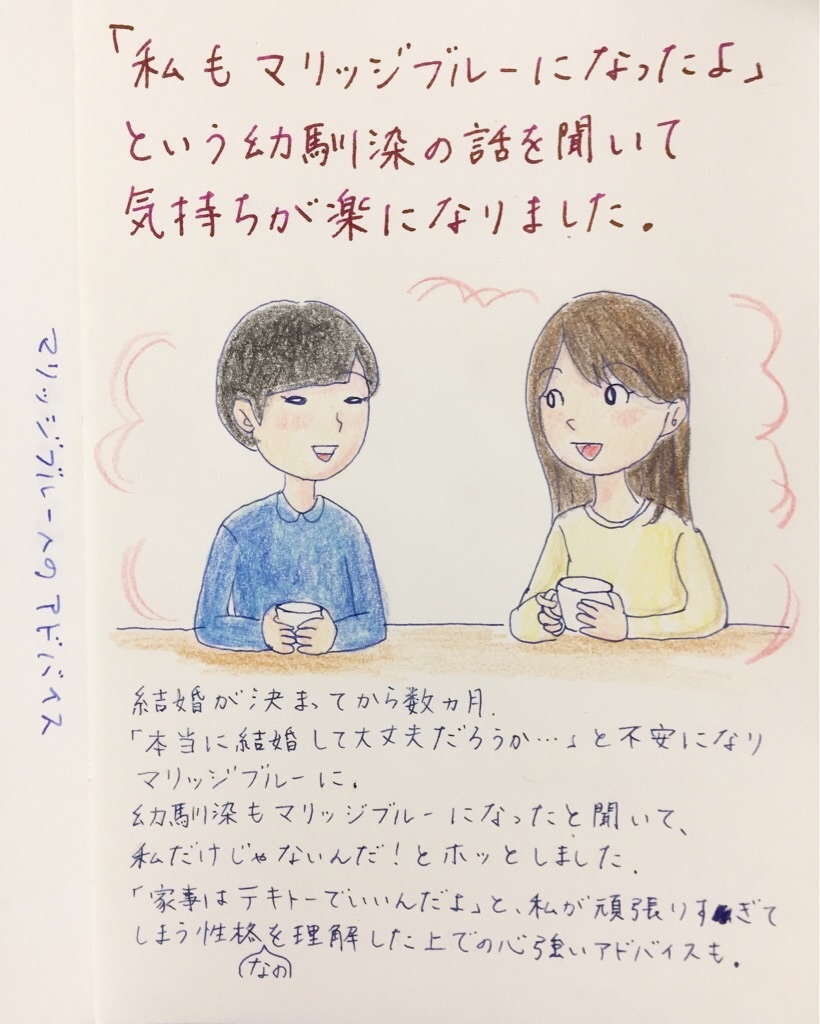 「私もマリッジブルーになったよ」
という幼馴染の話を聞いて
気持ちが楽になりました。
マリッジブルーへのアドバイス
結婚が決まってから数ヵ月.
「本当に結婚して大丈夫だろうか…」と不安になり
マリッジブルーに.
幼馴染もマリッジブルーになったと聞いて、
私だけじゃないんだ！とホッとしました.
「家事はテキトーでいいんだよ」と、私が頑張りすぎて
しまう性格なのを理解した上での心強いアドバイスも.